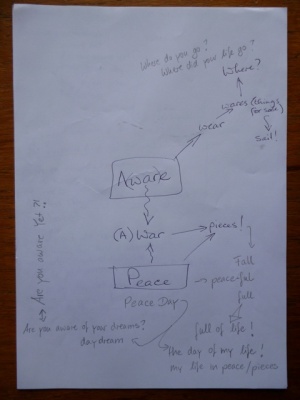 Where do you go?
Where did your life go?
Where?
wares (things
for sale)
sail!
wear
Aware
(A) War
pieces!
Fall
Peace
peace-ful
fall
Peace Day
fall of life!
Are you aware yet?!
Are you aware of your dreams?
day dream
the day of my life!
my life in peace/pieces